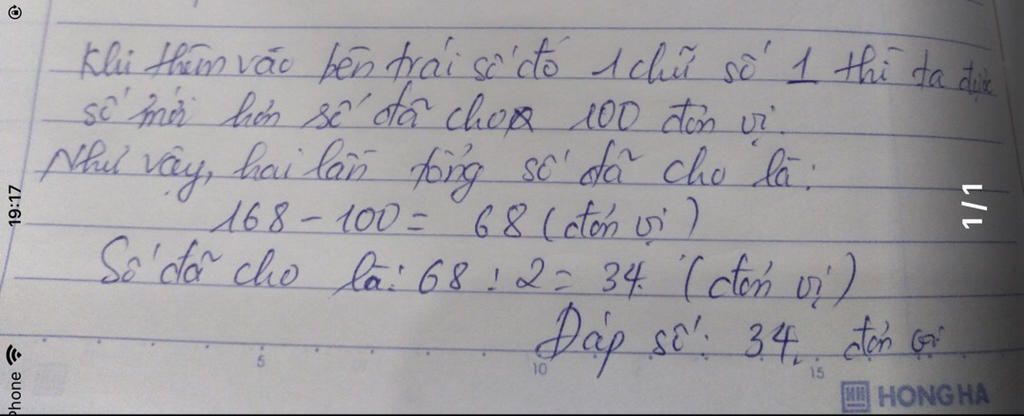 Khi thêm vào bên trái số đó 1 chữ số 1 thì ta được
số mới hơn số đã cho 100 đơn vị.
Như vậy, hai lần tổng số đã cho là:
168 - 100 = 68 (đơn vị)
Số đã cho là: 68 : 2 = 34 (đơn vị)
Đáp số: 34 đơn vị
5 10 15
HONG HA
19:17
Phone
1/1